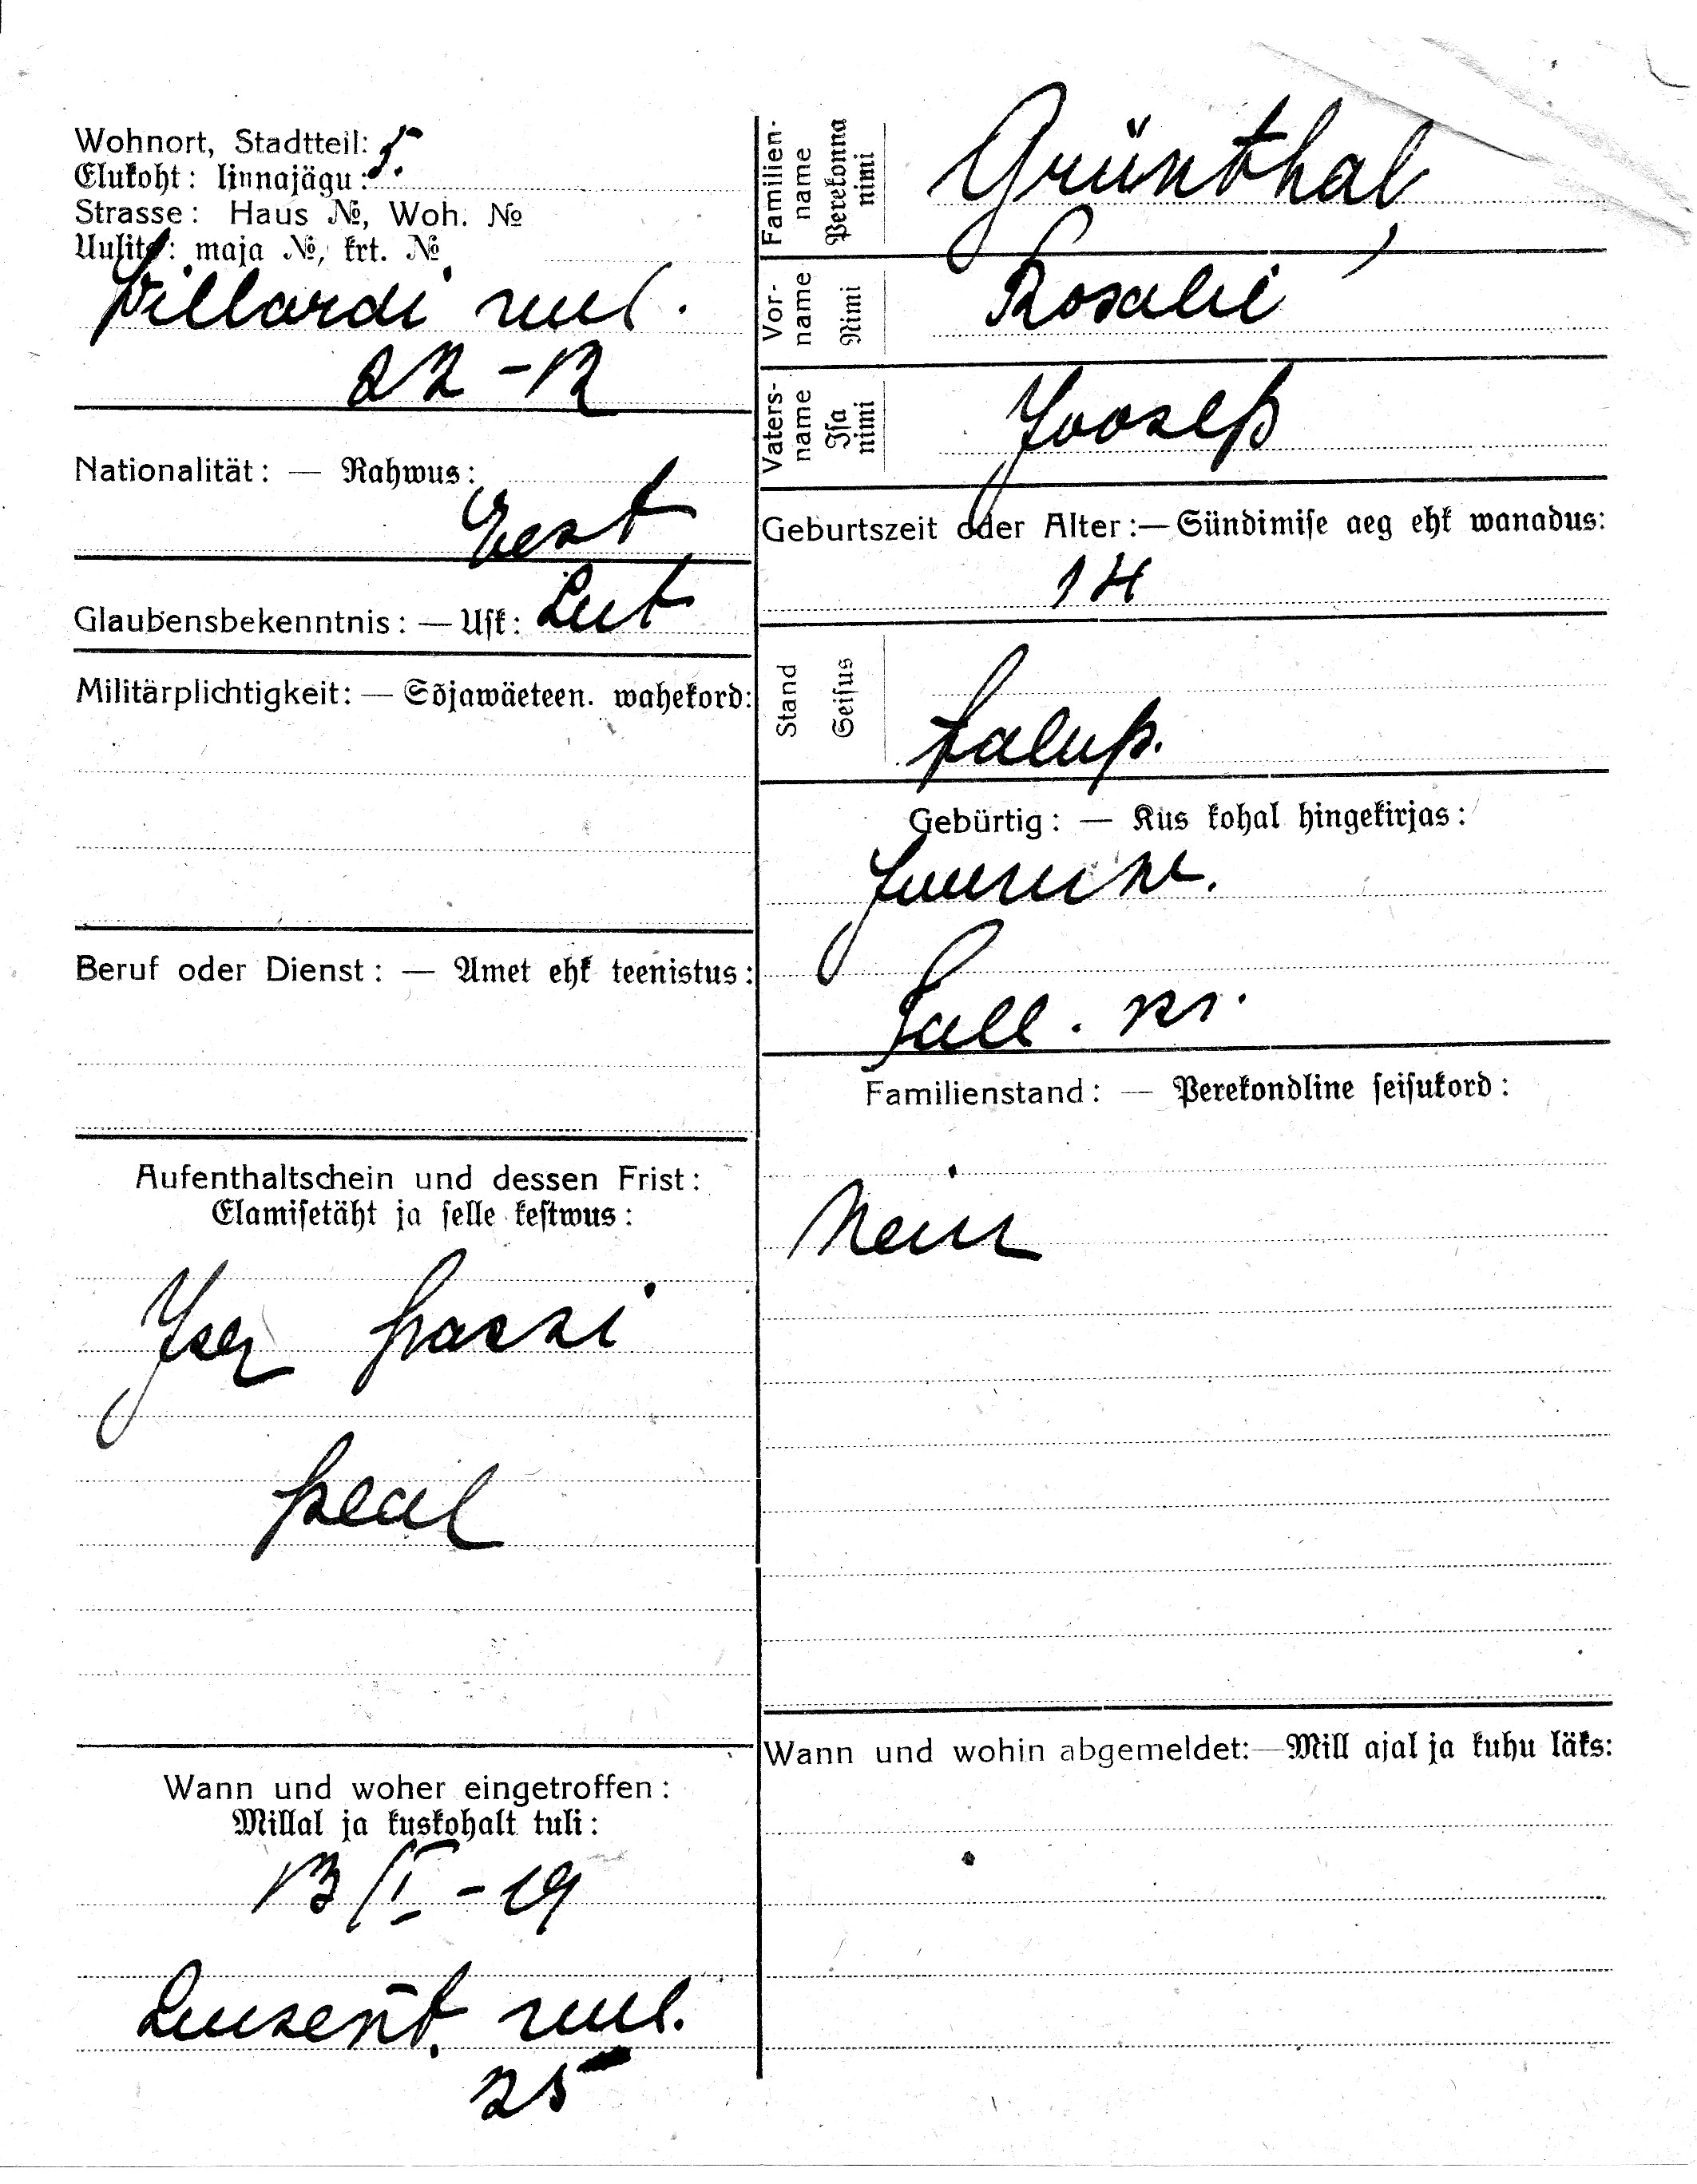 Wohnort, Stadtteil: 5.
Elukoht: linnajägu:
Strasse: Haus №, Woh. №
Uulits: maja №, krt. №
Willardi uul.
22 - 12
Nationalität: — Rahwus:
Eest
Glaubensbekenntnis: — Usk: Lut
Militärplichtigkeit: — Sõjawäeteen. wahekord:
Beruf oder Dienst: — Amet ehk teenistus:
Aufenthaltschein und dessen Frist:
Elamisetäht ja selle kestwus:
Isa passi
peal
Wann und woher eingetroffen:
Millal ja kuskohalt tuli:
13/I - 19
uul.
25
Familien-name Perekonna nimi
Grünthal,
Vor-name Nimi
Rosalie
Vaters-name Isa nimi
Joosep
Geburtszeit oder Alter: — Sündimise aeg ehk wanadus:
14
Stand Seisus
talup.
Gebürtig: — Kus kohal hingekirjas:
Tall. kr.
Familienstand: — Perekondline seisukord:
Neiu
Wann und wohin abgemeldet: — Mill ajal ja kuhu läks: